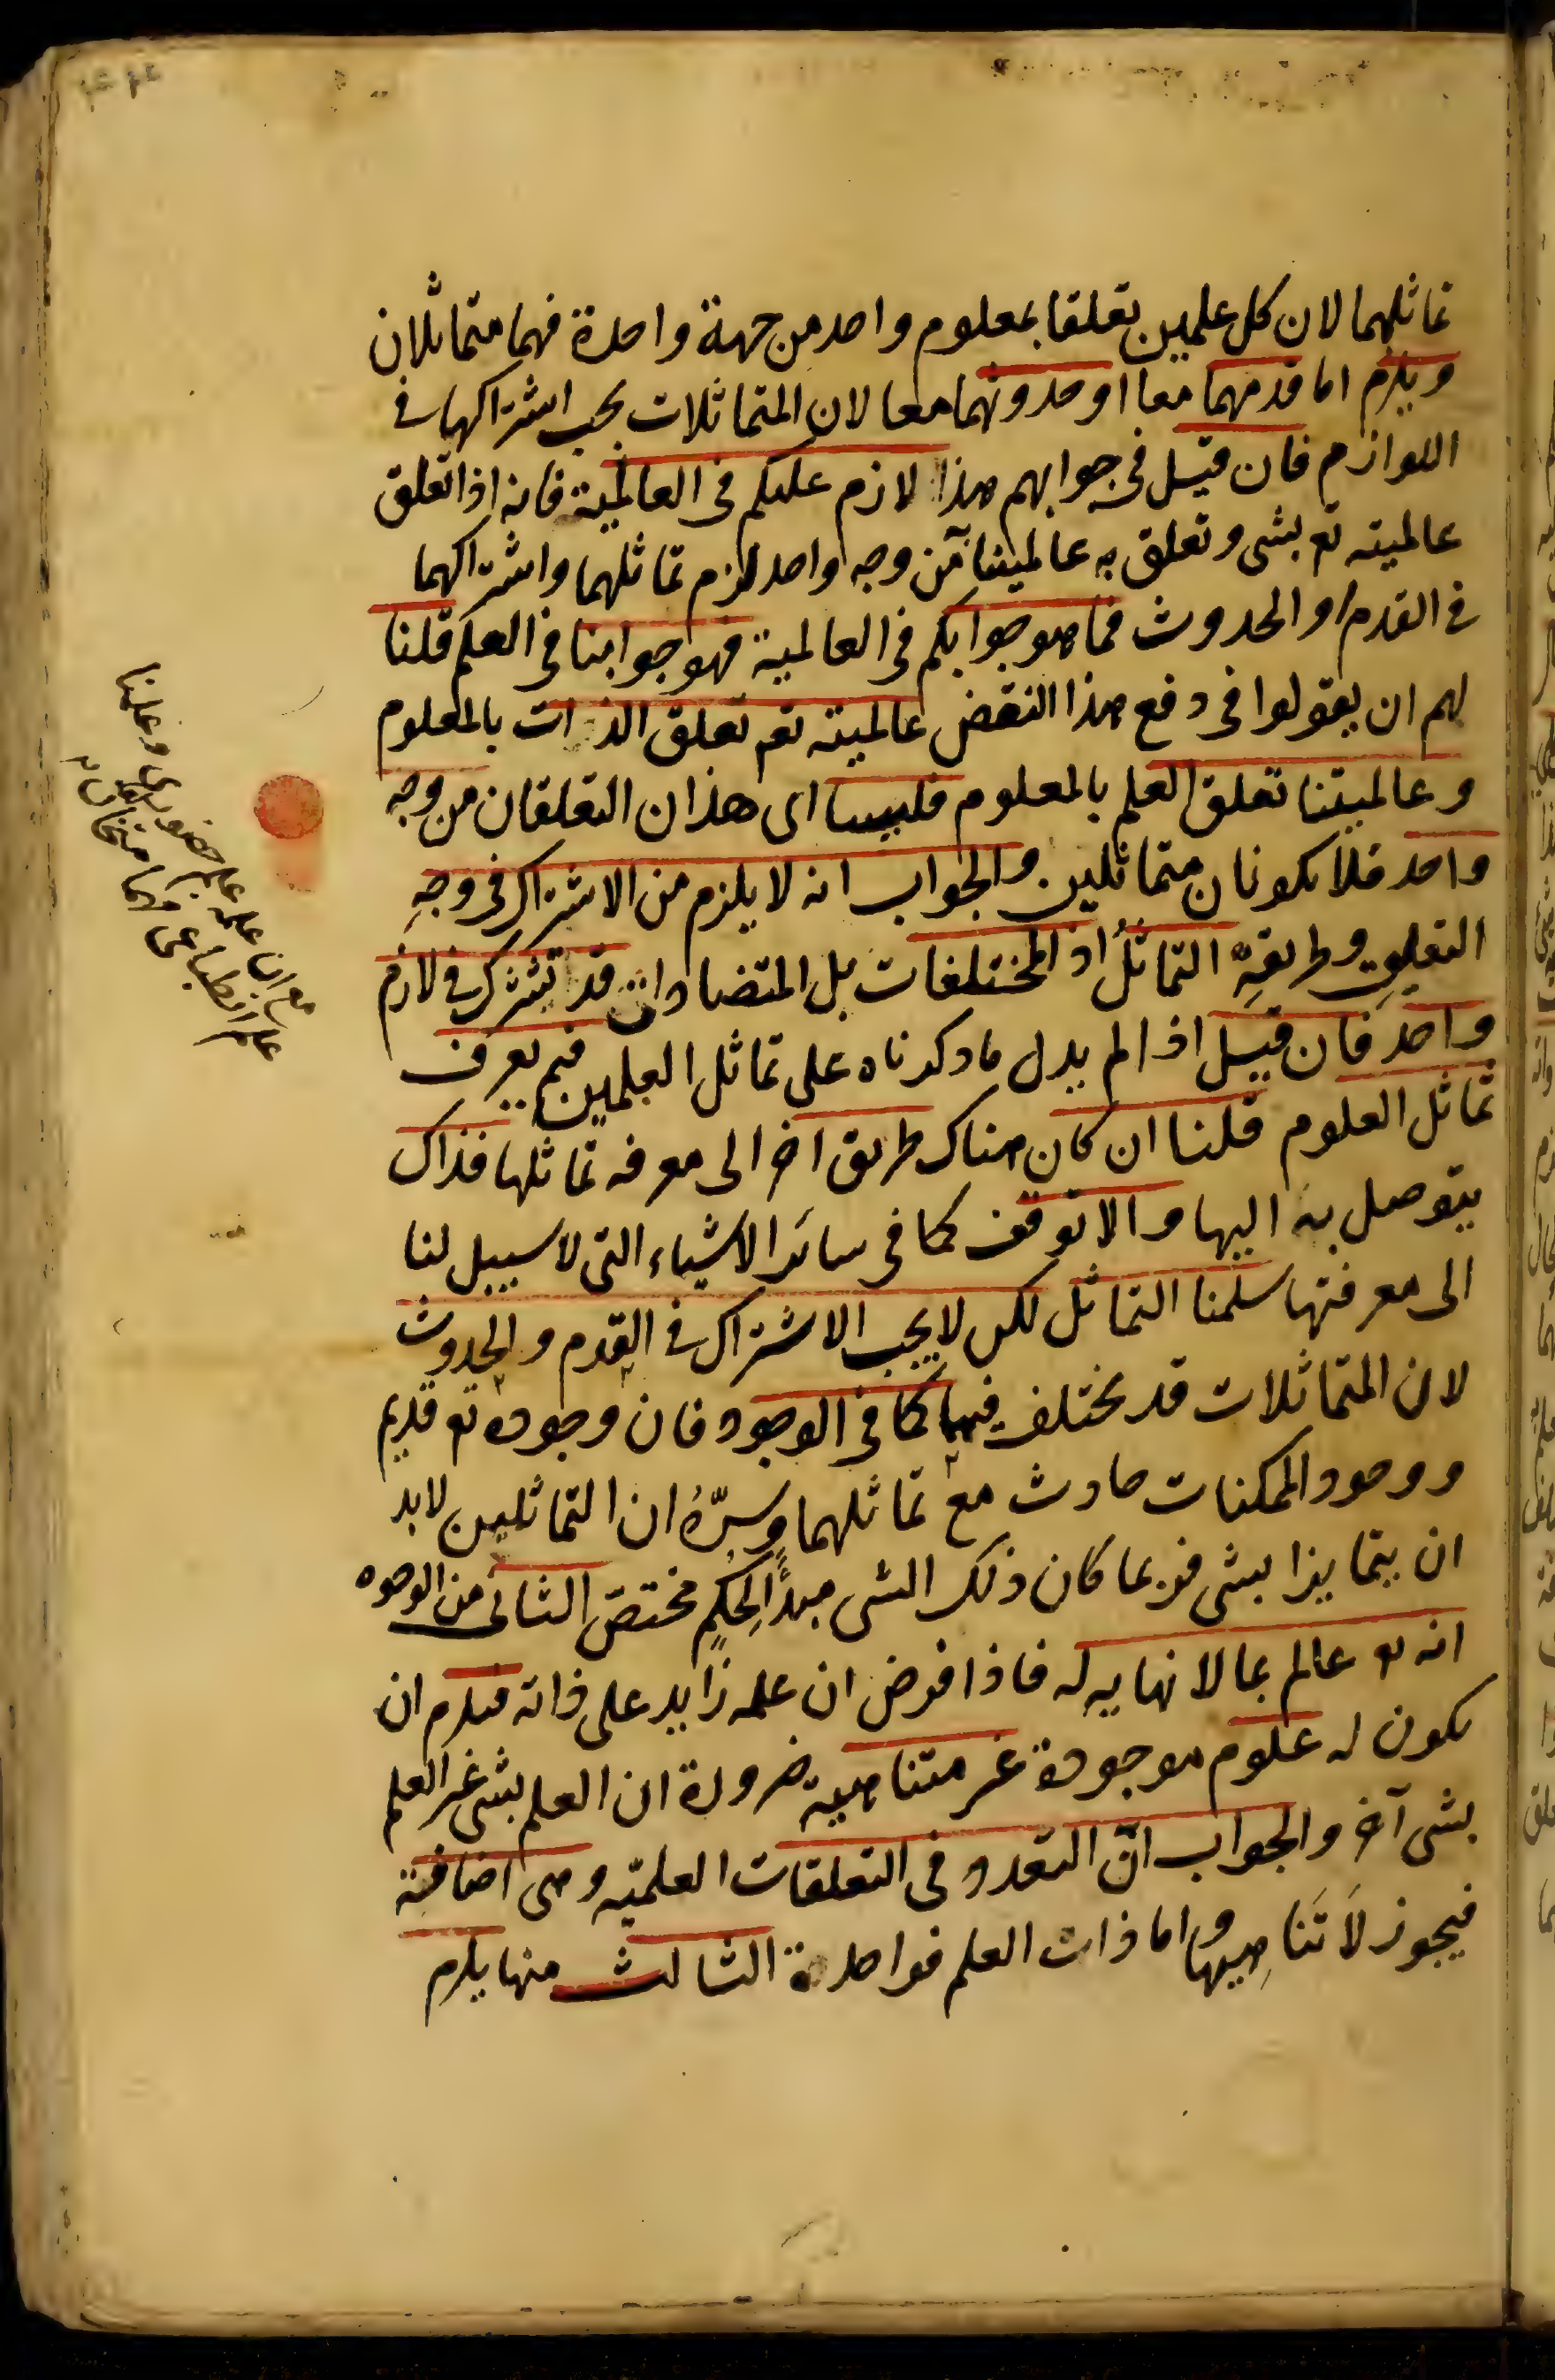 تماثلهما لان كل علمين تعلقا بمعلوم واحد من جهة واحدة فهما متماثلان
ويلزم اما قدمهما معا او حدوثهما معا لان المتماثلات يجب اشتراكها فى
اللوازم فان قيل فى جوابهم هذا لازم عليكم فى العالمية فانه اذا تعلق
عالميته تع بشى وتعلق به عالميتنا من وجه واحد لزم تماثلهما واشتراكهما
فى القدم او الحدوث فما هو جوابكم فى العالمية فهو جوابنا فى العلم قلنا
لهم ان يقولوا فى دفع هذا النقض عالميته تع تعلق الذات بالمعلوم
وعالميتنا تعلق العلم بالمعلوم فليسا اى هذان التعلقان من وجه
واحد فلا يكونان متماثلين والجواب انه لا يلزم من الاشتراك فى وجهِ
التعلقِ وطريقهِ التماثلُ اذ المختلفات بل المتضادات قد تشترك فى لازم
واحد فان قيل اذا لم يدل ما ذكرناه على تماثل العلمين فبم يعرف
تماثل العلوم قلنا ان كان هناك طريق اخر الى معرفه تماثلها فذاك
يتوصل به اليها والا توقف كما فى سائر الاشياء التى لا سبيل لنا
الى معرفتها سلمنا التماثل لكن لا يجب الاشتراك فى القدم والحدوث
لان المتماثلات قد يختلف فيها كما فى الوجود فان وجوده تع قديم
ووجود الممكنات حادث مع تماثلهما وسرّهُ ان التماثلين لابد
ان يتمايزا بشى فربما كان ذلك الشى مبدأً لحكمٍ مختصّ الثانى من الوجوه
انه تع عالم بما لا نهايه له فاذا فرض ان علمه زايد على ذاته فيلزم ان
يكون له علوم موجودة غير متناهية ضرورة ان العلم بشى غير العلم
بشى آخر والجواب انّ التعدد فى التعلقات العلميّه وهى اضافية
فيجوز لَا تَناهِيها واما ذات العلم فواحدة الثالث منها يلزم
مع ان علمه علم حضورى وعلمنا
علم انطباعى فهما متخالفان